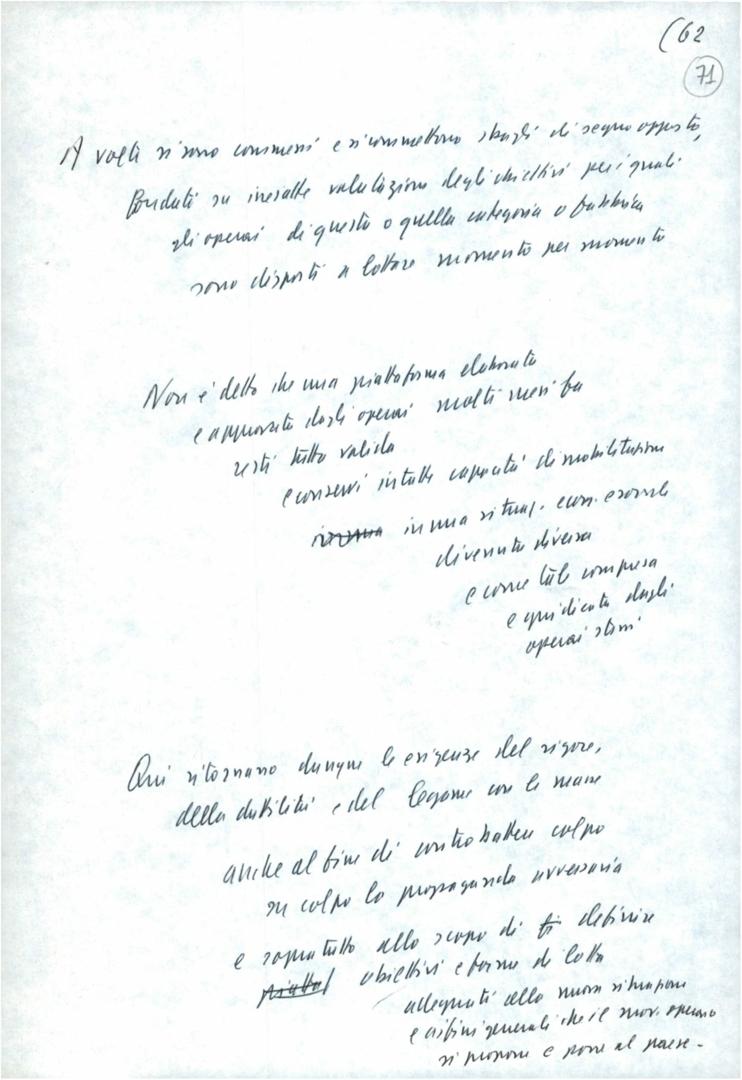 (62
71
A volte si sono commessi e si commettono sbagli di segno opposto,
fondati su inesatte valutazione degli obiettivi per i quali
gli operai di questa o quella categoria o fabbrica
sono disposti a lottare momento per momento
Non è detto che una piattaforma elaborata
e approvata dagli operai molti mesi fa
resti tutta valida
e conservi intatte capacità di mobilitazione
in una situaz. econ. e sociale
divenuta diversa
e come tale compresa
e giudicata dagli
operai stessi
Qui ritornano dunque le esigenze del rigore,
della duttilità e del legame con le masse
anche al fine di controbattere colpo
su colpo la propaganda avversaria
e sopratutto allo scopo di definire
obiettivi e forme di lotta
adeguati alla nuova situazione
e ai fini generali che il mov. operaio
si propone e pone al paese -